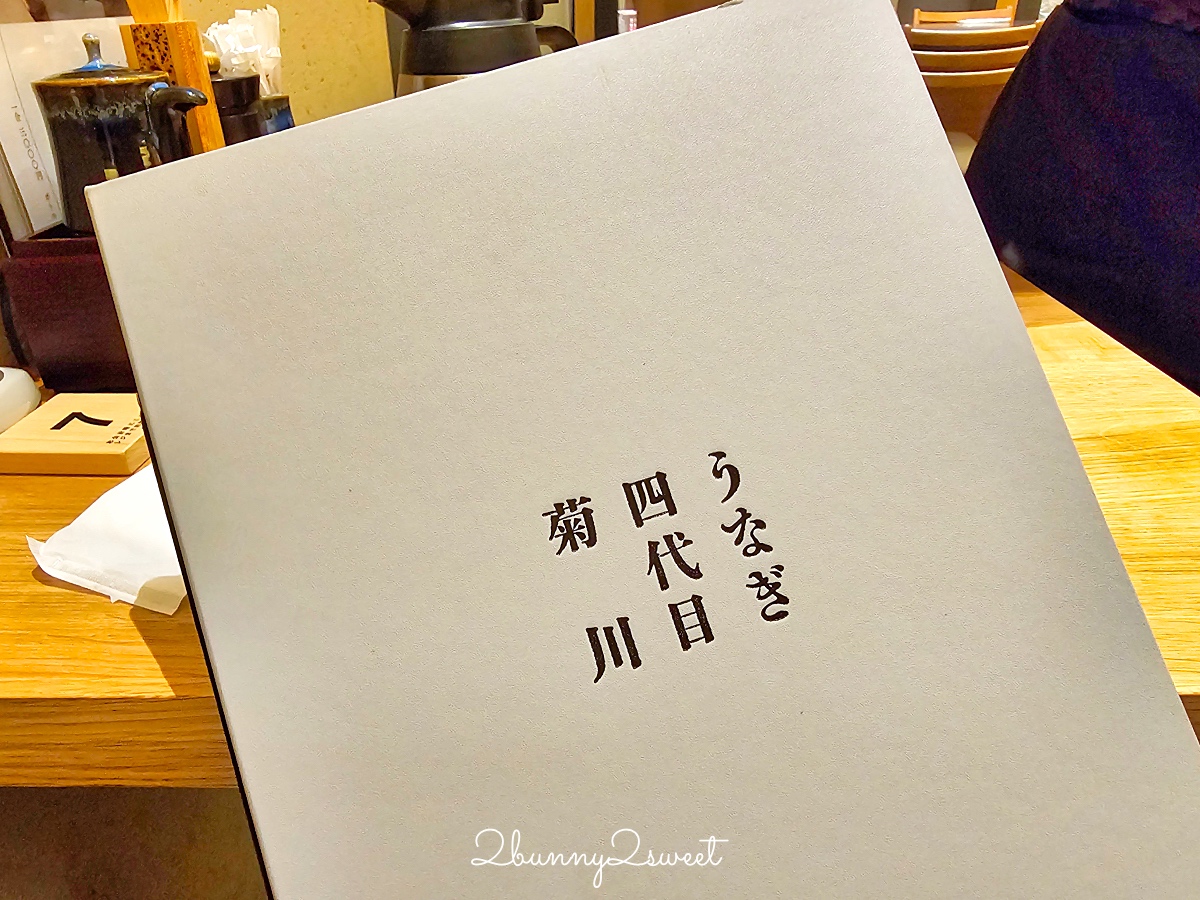 うなぎ
四代目
菊川
へ
2bunny2sweet